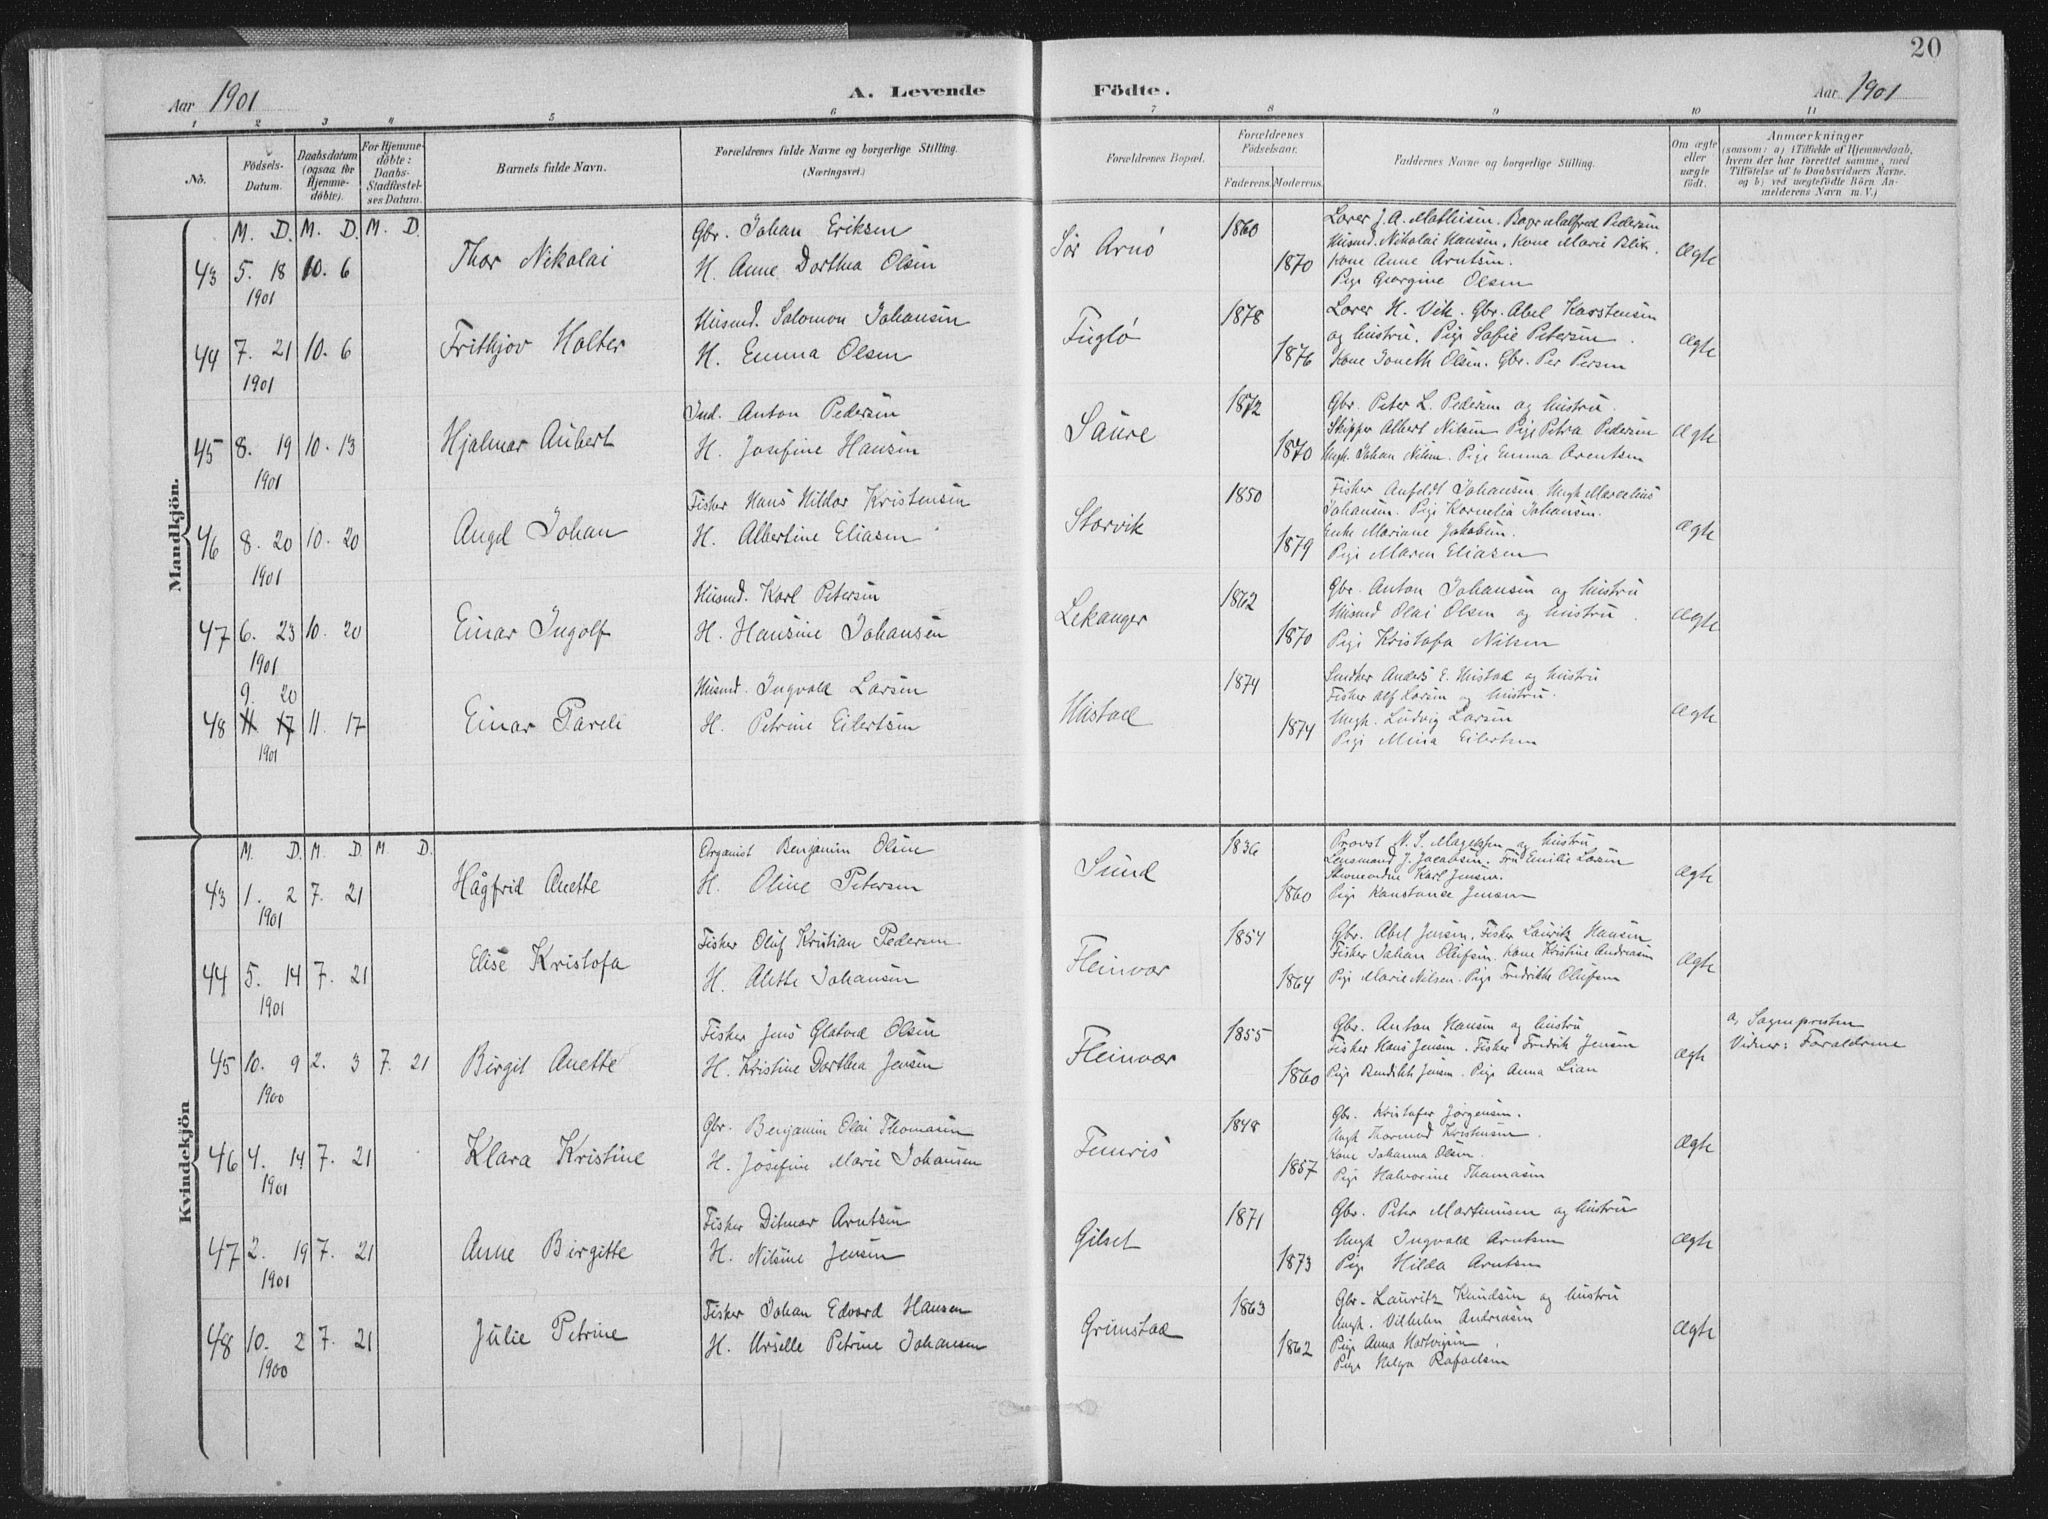 20
Aar 1901
A. Levende
Födte.
Aar 1901
1 2 3 4 5 6 7 8 9 10 11
No.
Födsels-
Datum.
Daabsdatum
(ogsaa for
Hjemme-
döbte).
For Hjemme-
döbte:
Daabs-
Stadfæstel-
ses Datum.
Barnets fulde Navn.
Forældrenes fulde Navne og borgerlige Stilling.
(Næringsvei.)
Forældrenes Bopæl.
Forældrenes
Födselsaar.
Faderens. Moderens.
Faddernes Navne og borgerlige Stilling.
Om ægte
eller
uægte
födt.
Anmærkninger
(saasom: a) i Tilfælde af Hjemmedaab,
hvem der har forrettet samme, med
Tilföielse af to Daabsvidners Navne,
og b) ved uægtefödte Börn An-
melderens Navn m. V.)
Mandkjön.
M. D. M. D. M. D
43 5. 18 10. 6
1901
Thor Nikolai
Gbr. Johan Eriksen
H. Anne Dorthea Olsen
Sör Arnö
1860
1870
Lærer J. A. Mathisen. Malfred Pedersen
Husmd. Nikolai Hansen. Kone Marie Blix.
Kone Anne Arntsen.
Pige Georgine Olsen
Ægte
44 7. 21 10. 6
1901
Frithjov Holter
Husmd. Salomon Johansen
H. Emma Olsen
Fuglö
1878
1876
Lærer H. Vik. Gbr. Abel Karstensen
og hustru. Pige Sofie Petersen.
Kone Joneth Olsen. Gbr. Per Persen
Ægte
45 8. 19 10. 13
1901
Hjalmar Aubert
Ind. Anton Pedersen
H. Josefine Hansen
Saure
1872
1870
Gbr. Peter L. Pedersen og hustru.
Skipper Albert Nilsen Pige Petra Pedersen
Ungk. Johan Nilsen. Pige Emma Arentsen
Ægte
46 8. 20 10. 20
1901
Angel Johan
Fisker Hans Hildor Kristensen
H. Albertine Eliasen
Storvik
1850
1879
Fisker Anfeldt Johansen. Ungk Marcelius
Johansen. Pige Kornelia Johansen.
Enke Mariane Jakobsen.
Pige Maren Eliasen
Ægte
47 6. 23 10. 20
1901
Einar Ingolf
Husmd. Karl Petersen
H. Hansine Johansen
Lekanger
1862
1870
Gbr. Anton Johansen og hustru
Husmd Olai Olsen og hustru.
Pige Kristofa Nilsen
Ægte
9. 20
48 11 17 11. 17
1901
Einar Pareli
Husmd. Ingvald Larsen
H. Petrine Eilertsen
Hustad
1874
1874
Anders E. Hustad og hustru
Fisker Alf Larsen og hustru.
Ungk. Ludvig Larsen
Pige Mina Eilertsen
Ægte
Kvindekjön
M. D. M. D M. D.
43 1. 2 7. 21
1901
Hågfrid Anette
Organist Benjamin Olsen
H. Oline Petersen
Sund
1836
1860
Provst og hustru
Lensmand J. Jacobsen. Fru Emilie Larsen
Karl Jensen.
Pige Konstanse Jensen
Ægte
44 5. 14 7. 21
1901
Elise Kristofa
Fisker Oluf Kristian Pedersen
H. Alette Johansen
Fleinvær
1854
1864
Gbr. Abel Jensen. Fisker Laurits Hansen
Fisker Johan Olufsen. Kone Kristine Andreasen
Pige Marie Nilsen. Pige Fredrikke Olufsen
Ægte
45 10. 9 2. 3 7. 21
1900
Birgit Anette
Fisker Jens Glatved Olsen
H. Kristine Dorthea Jensen
Fleinvær
1855
1860
Gbr. Anton Hansen og hustru
Fisker Hans Jensen. Fisker Fredrik Jensen
Pige Bendikte Jensen. Pige Anna Lian
Ægte
a, Sognepresten
Vidner: Forældrene
46 4. 14 7. 21
1901
Klara Kristine
Gbr. Benjamin Olai Thomasen
H. Josefine Marie Johansen
Femris
1848
1857
Gbr. Kristofer Jörgensen.
Ungk Thormod Kristensen.
Kone Johanna Olsen.
Pige Halvorine Thomasen
Ægte
47 2. 19 7. 21
1901
Anne Birgitte
Fisker Ditmar Arntsen
H. Nilsine Jensen
Gilset
1871
1873
Gbr. Peter Martinusen og hustru
Ungk Ingvald Arntsen
Pige Hilda Arntsen
Ægte
48 10. 2 7. 21
1900
Julie Petrine
Fisker Johan Edvard Hansen
H. Urselle Petrine Johansen
Grimstad
1863
1862
Gbr. Lauritz Knudsen og hustru
Ungk. Vilhelm Andreasen
Pige Anna Hartvigsen
Pige Helga Rafaelsen
Ægte